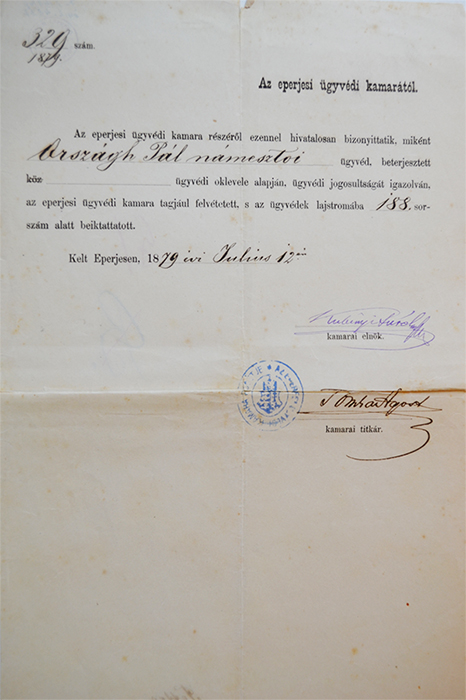 329 szám.
1879.
Az eperjesi ügyvédi kamarától.
Az eperjesi ügyvédi kamara részéről ezennel hivatalosan bizonyittatik, miként
Országh Pál námesztoi ügyvéd, beterjesztett
köz ügyvédi oklevele alapján, ügyvédi jogosultságát igazolván,
az eperjesi ügyvédi kamara tagjául felvétetett, s az ügyvédek lajstromába 188. sor-
szám alatt beiktattatott.
Kelt Eperjesen, 1879 ivi Julius 12én
kamarai elnök.
kamarai titkár.